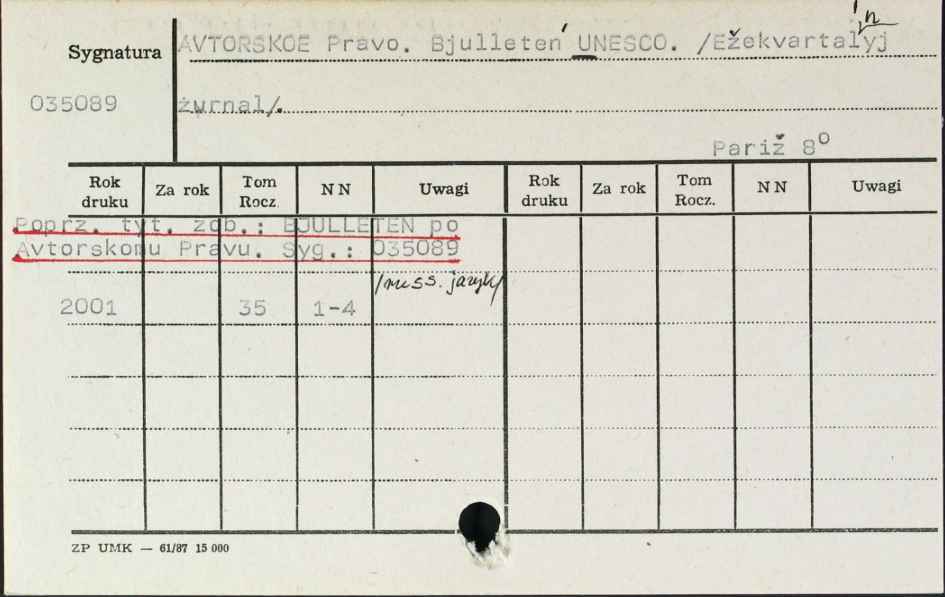 Sygnatura
AVTORSKOE Pravo. Bjulleten' UNESCO. /Ežekvartal'nyj
035089
žurnal/.
Pariž 8°
Rok druku Za rok Tom Rocz. NN Uwagi Rok druku Za rok Tom Rocz. NN Uwagi
Poprz. tyt. zob.: BJULLETEN po
Avtorskomu Pravu. Syg.: 035089
/russ. jazyk/
2001 35 1-4
ZP UMK — 61/87 15 000